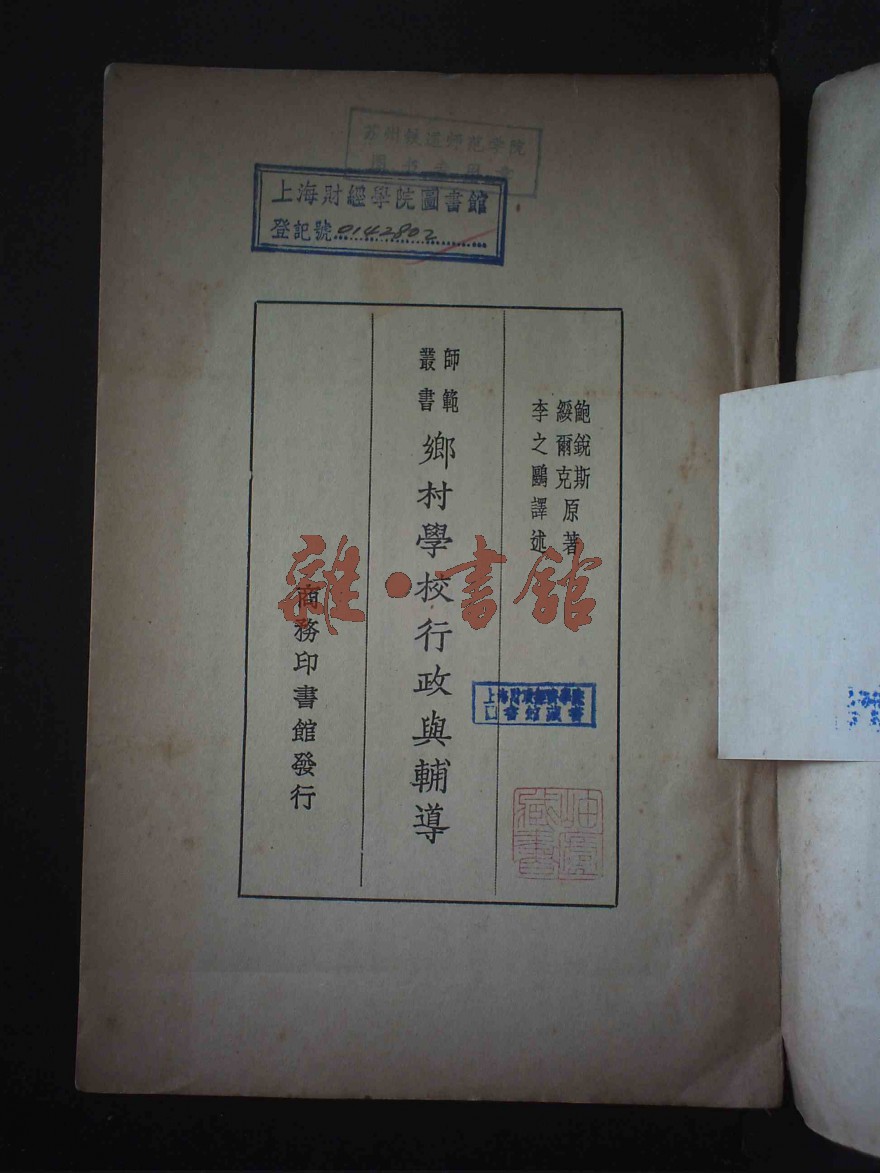 苏州铁道师范学院
上海財經學院圖書館
登記號 0142802
鮑銳斯
綏爾克 原著
李之鷗譯述
師範
叢書
鄉村學校行政與輔導
商務印書館發行
雜·書館
上海財政經濟學院
圖書館藏書